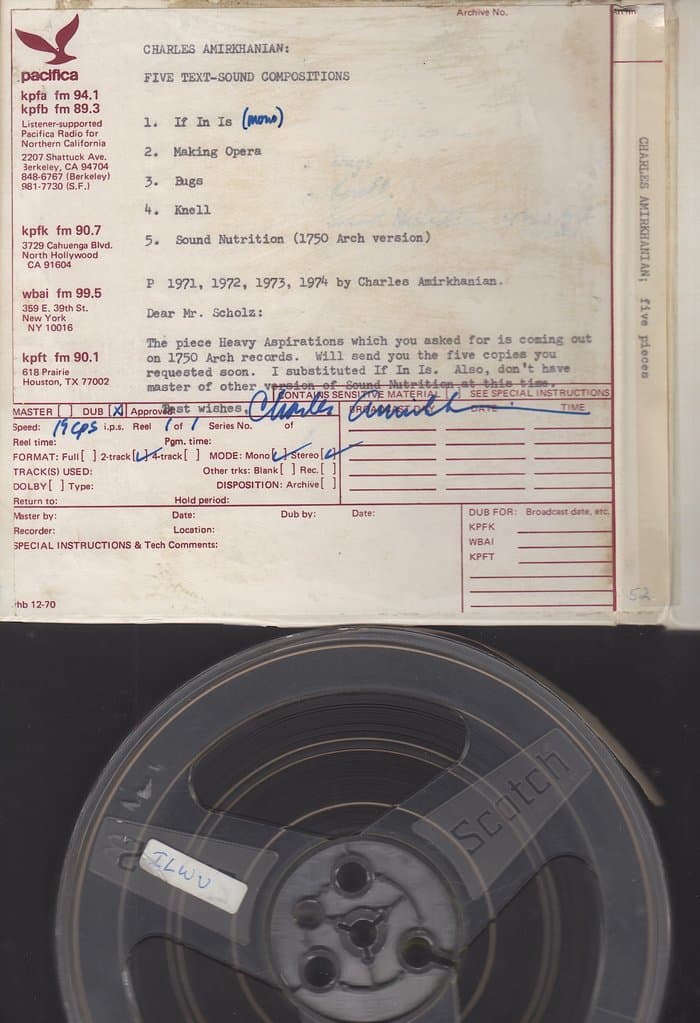 Archive No.
pacifica
kpfa fm 94.1
kpfb fm 89.3
Listener-supported
Pacifica Radio for
Northern California
2207 Shattuck Ave.
Berkeley, CA 94704
848-6767 (Berkeley)
981-7730 (S.F.)
kpfk fm 90.7
3729 Cahuenga Blvd.
North Hollywood
CA 91604
wbai fm 99.5
359 E. 39th St.
New York
NY 10016
kpft fm 90.1
618 Prairie
Houston, TX 77002
CHARLES AMIRKHANIAN:
FIVE TEXT-SOUND COMPOSITIONS
1. If In Is (mono)
2. Making Opera
3. Bugs
4. Knell
5. Sound Nutrition (1750 Arch version)
P 1971, 1972, 1973, 1974 by Charles Amirkhanian.
Dear Mr. Scholz:
The piece Heavy Aspirations which you asked for is coming out
on 1750 Arch records. Will send you the five copies you
requested soon. I substituted If In Is. Also, don't have
master of other version of Sound Nutrition at this time.
Best wishes, Charles Amirkh
CONTAINS SENSITIVE MATERIAL SEE SPECIAL INSTRUCTIONS
MASTER [ ] DUB [X] Approved
BROADCAST DAY DATE TIME
Speed: 19 cps i.p.s. Reel 1 of 1 Series No. of
Reel time: Pgm. time:
FORMAT: Full [ ] 2-track [✓] 4-track [ ] MODE: Mono [✓] Stereo [✓]
TRACK(S) USED: Other trks: Blank [ ] Rec. [ ]
DOLBY [ ] Type: DISPOSITION: Archive [ ]
Return to: Hold period:
Master by: Date: Dub by: Date:
Recorder: Location:
SPECIAL INSTRUCTIONS & Tech Comments:
DUB FOR: Broadcast date, etc.
KPFK
WBAI
KPFT
hb 12-70
CHARLES AMIRKHANIAN; five pieces
52
Scotch
ILWU